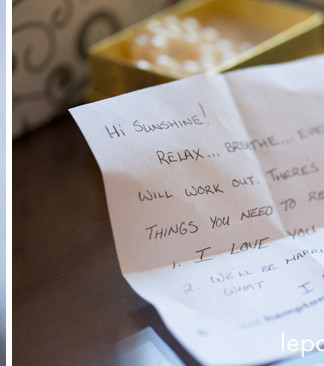 Hi SUNSHINE!
RELAX... BREATHE... EVE
WILL WORK OUT. THERE'S
THINGS YOU NEED TO RE
1. I LOVE YOU
2. WE'LL BE MARRI
WHAT. I
hampton
lepo